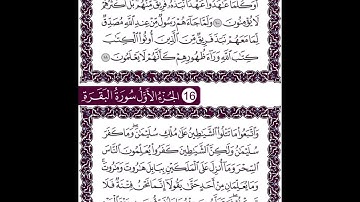 أَوَكُلَّمَا عَٰهَدُوا۟ عَهْدًا نَّبَذَهُۥ فَرِيقٌ مِّنْهُم بَلْ أَكْثَرُهُمْ
لَا يُؤْمِنُونَ ۝ وَلَمَّا جَآءَهُمْ رَسُولٌ مِّنْ عِندِ ٱللَّهِ مُصَدِّقٌ
لِّمَا مَعَهُمْ نَبَذَ فَرِيقٌ مِّنَ ٱلَّذِينَ أُوتُوا۟ ٱلْكِتَٰبَ
كِتَٰبَ ٱللَّهِ وَرَآءَ ظُهُورِهِمْ كَأَنَّهُمْ لَا يَعْلَمُونَ ۝
الجزء الأول 16 سورة البقرة
وَٱتَّبَعُوا۟ مَا تَتْلُوا۟ ٱلشَّيَٰطِينُ عَلَىٰ مُلْكِ سُلَيْمَٰنَ وَمَا كَفَرَ
سُلَيْمَٰنُ وَلَٰكِنَّ ٱلشَّيَٰطِينَ كَفَرُوا۟ يُعَلِّمُونَ ٱلنَّاسَ
ٱلسِّحْرَ وَمَآ أُنزِلَ عَلَى ٱلْمَلَكَيْنِ بِبَابِلَ هَٰرُوتَ وَمَٰرُوتَ
وَمَا يُعَلِّمَانِ مِنْ أَحَدٍ حَتَّىٰ يَقُولَآ إِنَّمَا نَحْنُ فِتْنَةٌ فَلَا